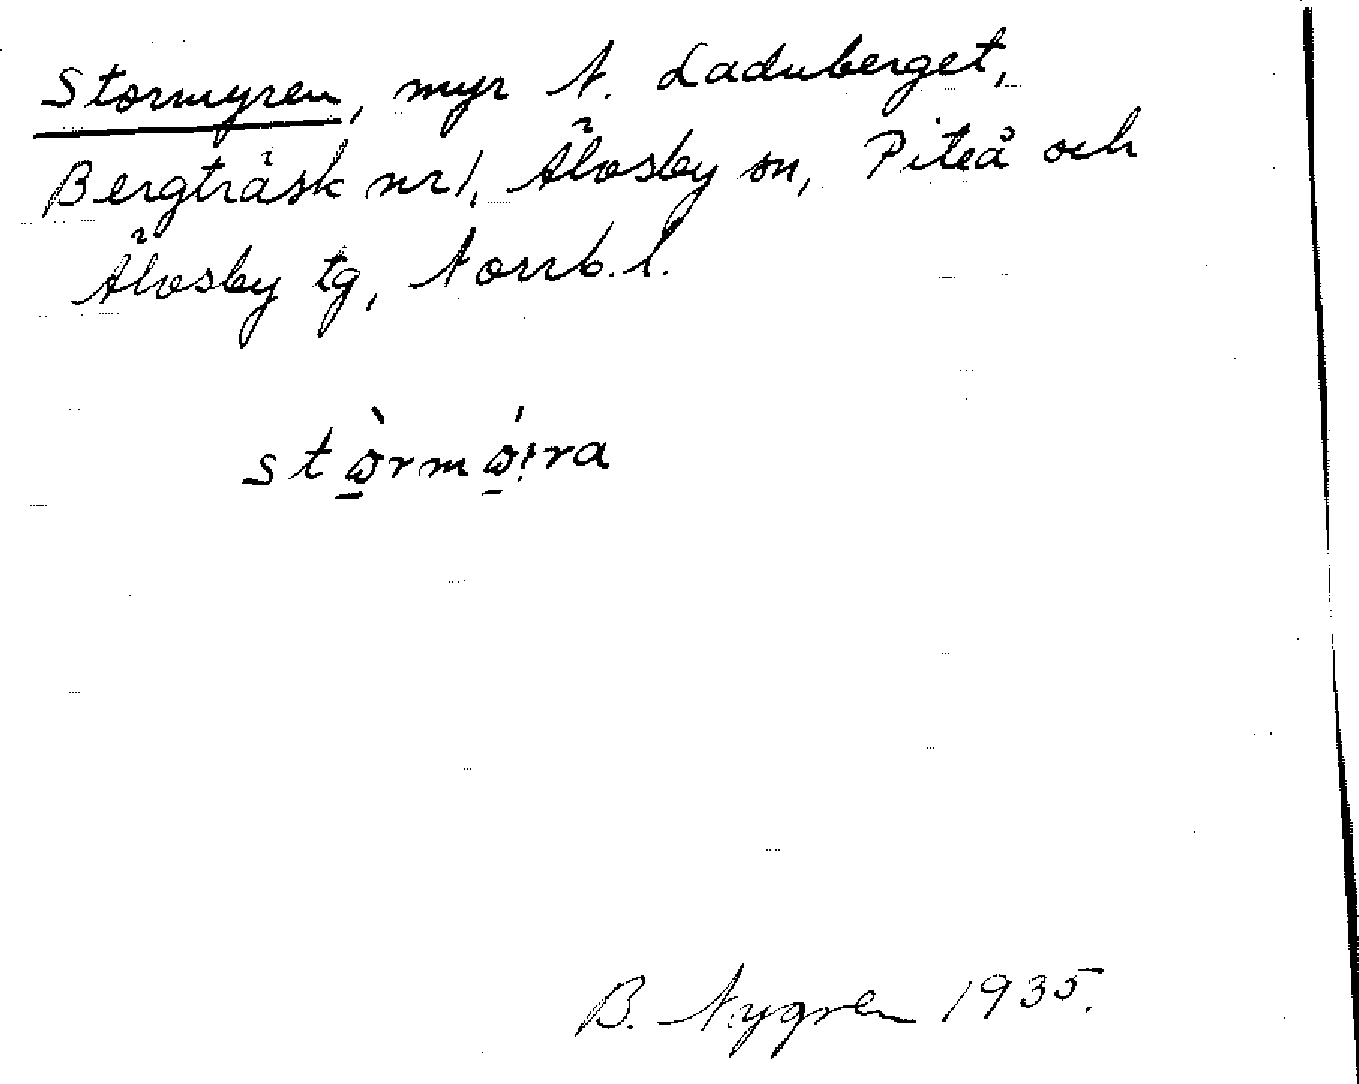 Stormyren, myr N. Laduberget,
Bergträsk nr 1, Älvsby sn, Piteå och
Älvsby tg, Norrb. l.
B. Nygren 1935.